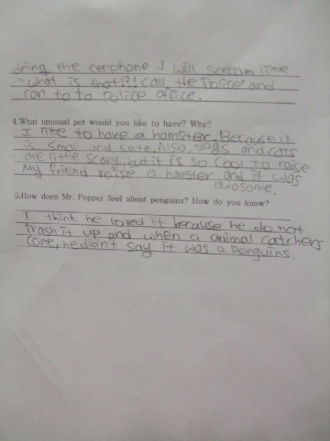 bring the cellphone I will scream like
"what is that!?! call the Police" and
ran to to Police office.
4.What unusual pet would you like to have? Why?
I like to have a hamster. Because it
is small and cute. Also, dogs and cats
are little scary, but it is so cool to raise.
My friend raise a hamster and it was
awasome.
5.How does Mr. Popper feel about penguins? How do you know?
I think he loved it because he do not
trash it up and when a animal catchers
come, he didn't say it was a Penguins.